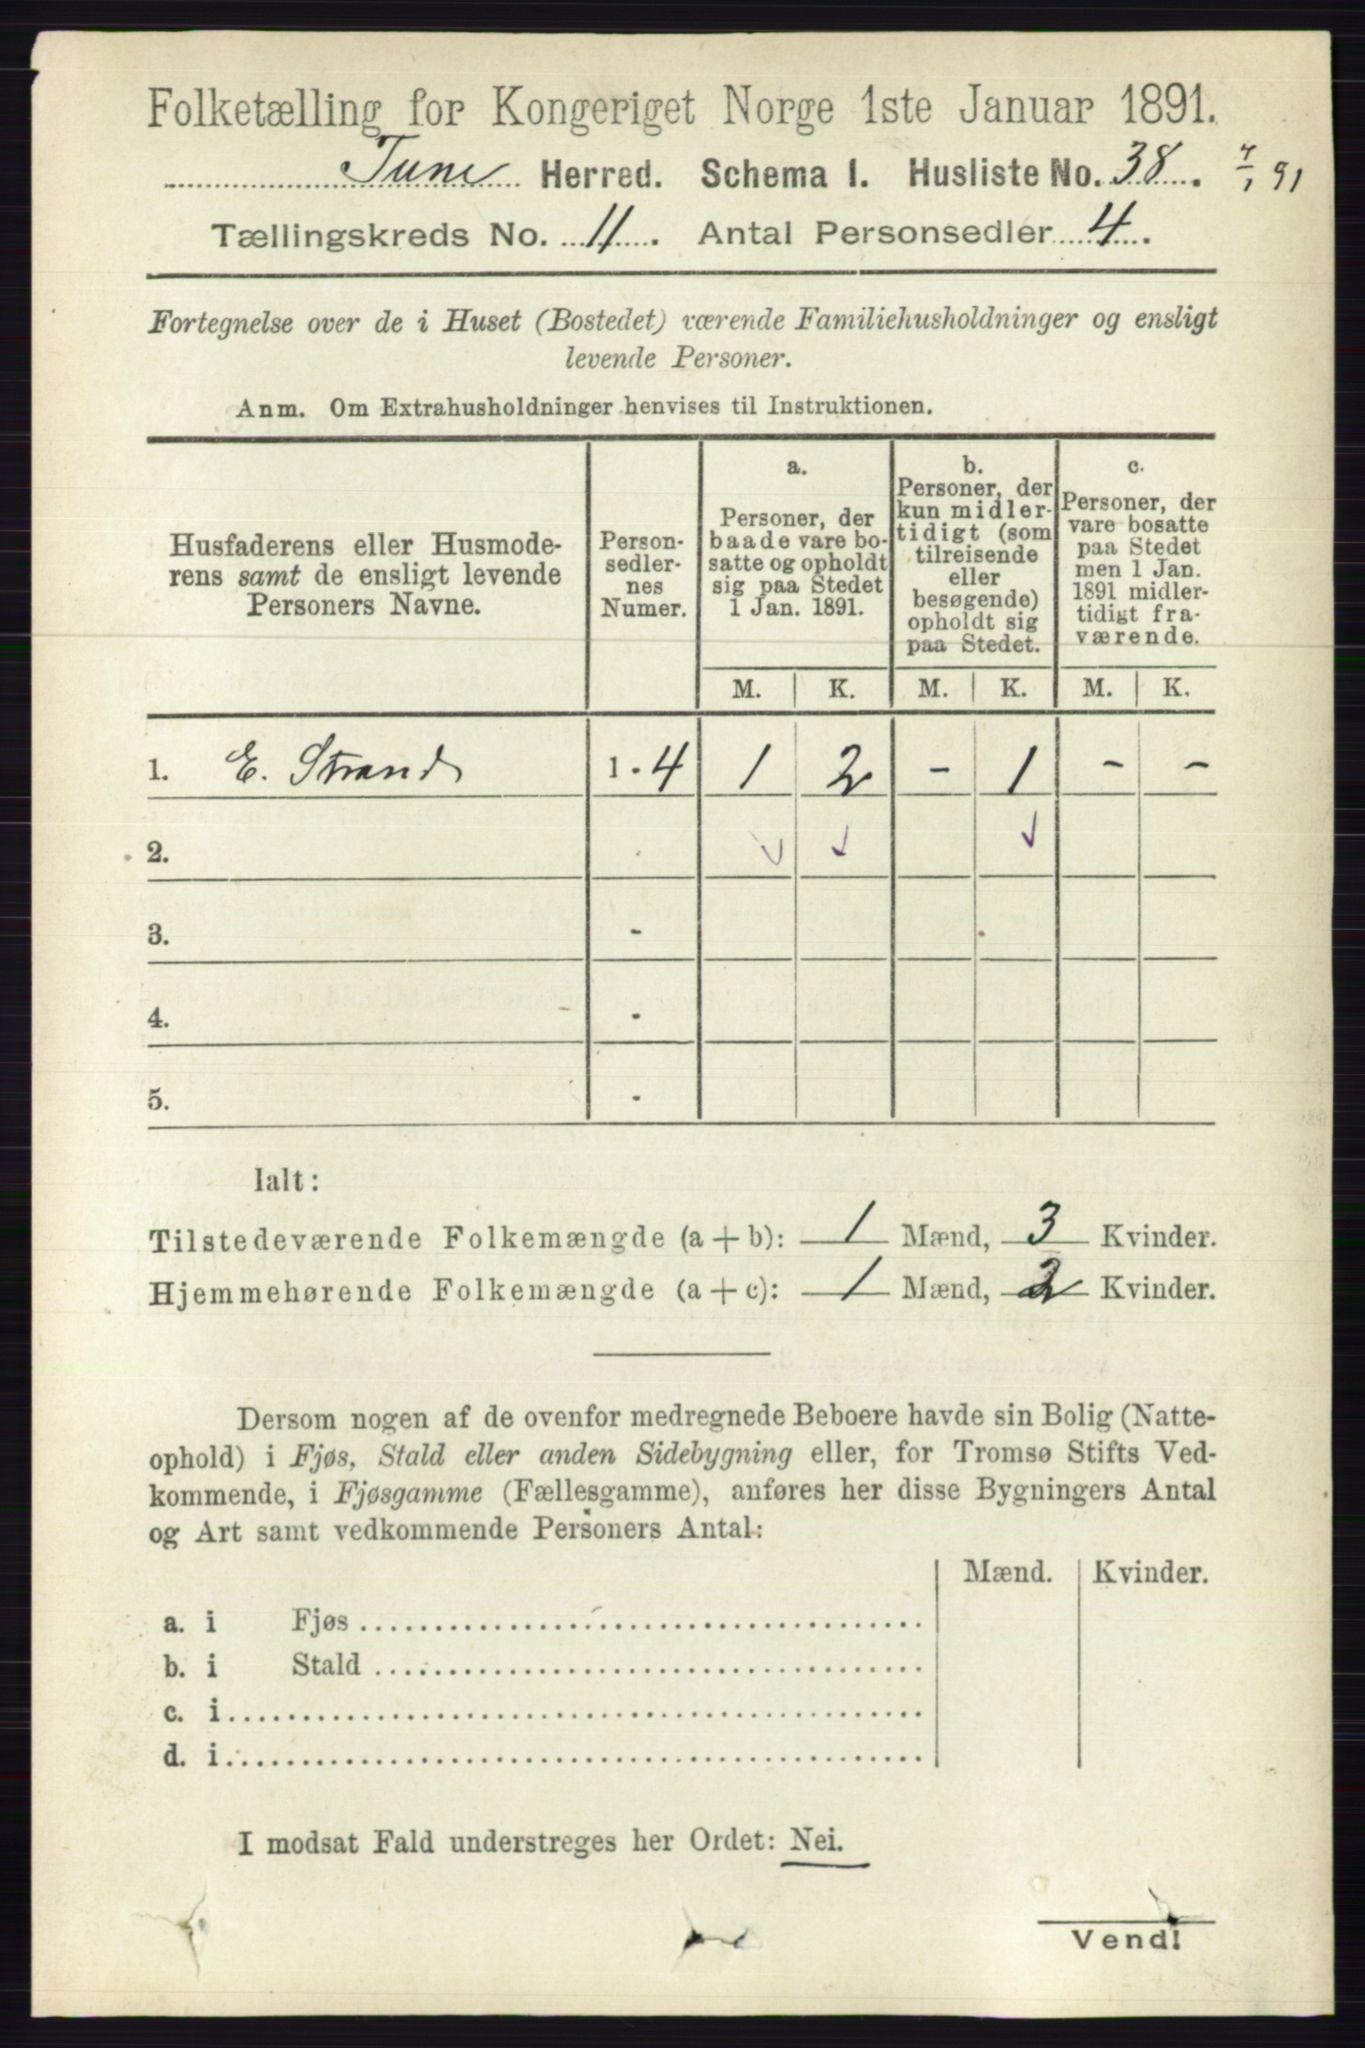 Folketælling for Kongeriget Norge 1ste Januar 1891.
Tune Herred. Schema I. Husliste No. 38. 7/1 91
Tællingskreds No. 11. Antal Personsedler 4.
Fortegnelse over de i Huset (Bostedet) værende Familiehusholdninger og ensligt
levende Personer.
Anm. Om Extrahusholdninger henvises til Instruktionen.
Husfaderens eller Husmode-
rens samt de ensligt levende
Personers Navne.
Person-
sedler-
nes
Numer.
a.
Personer, der
baade vare bo-
satte og opholdt
sig paa Stedet
1 Jan. 1891.
b.
Personer, der
kun midler-
tidigt (som
tilreisende
eller
besøgende)
opholdt sig
paa Stedet.
c.
Personer, der
vare bosatte
paa Stedet
men 1 Jan.
1891 midler-
tidigt fra-
værende.
M. K. M. K. M. K.
1. E. Strand 1 - 4 1 2 - 1 - -
2.
3. -
4. -
5. -
Ialt:
Tilstedeværende Folkemængde (a + b): 1 Mænd, 3 Kvinder.
Hjemmehørende Folkemængde (a + c): 1 Mænd, 2 Kvinder.
Dersom nogen af de ovenfor medregnede Beboere havde sin Bolig (Natte-
ophold) i Fjøs, Stald eller anden Sidebygning eller, for Tromsø Stifts Ved-
kommende, i Fjøsgamme (Fællesgamme), anføres her disse Bygningers Antal
og Art samt vedkommende Personers Antal:
Mænd. Kvinder.
a. i Fjøs
b. i Stald
c. i
d. i
I modsat Fald understreges her Ordet: Nei.
Vend!